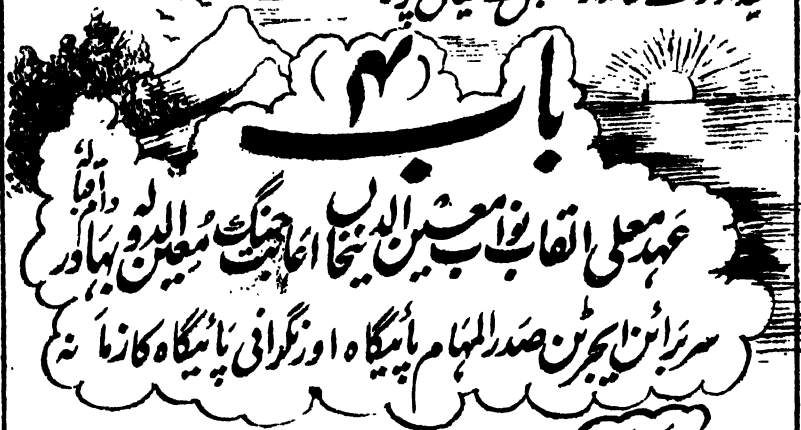 باب ۴
عہد معلی القاب نواب معین الدینخاں اعانت جنگ معین الدولہ بہادر دام اقبالہ
سر برائن ایجرٹن صدر المہام پائیگاہ اور نگرافی پائیگاہ کا زمانہ